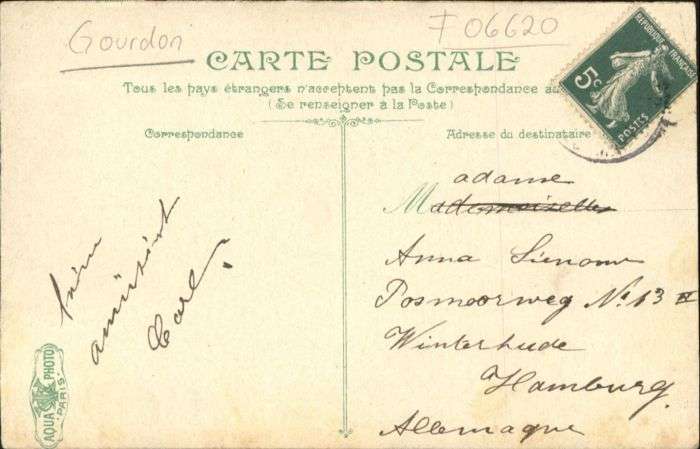 Gourdon
F 06620
CARTE POSTALE
Tous les pays étrangers n'acceptent pas la Correspondance au
(Se renseigner à la Poste)
Correspondance
Adresse du destinataire
RÉPUBLIQUE FRANÇAISE
5c
POSTES
amüsirst
Carl
AQUA PHOTO
PARIS
Madame
Mademoiselle
Anna Sienow
Posmoorweg No 13 II
Winterhude
Hamburg.
Allemagne